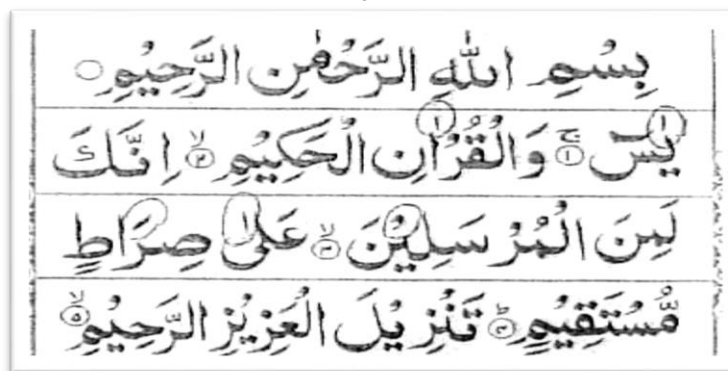 بِسْمِ اللهِ الرَّحْمٰنِ الرَّحِيْمِ ○
يٰسٓ ۚ ﴿١﴾ وَالْقُرْاٰنِ الْحَكِيْمِ ۙ ﴿٢﴾ اِنَّكَ
لَمِنَ الْمُرْسَلِيْنَ ۙ ﴿٣﴾ عَلٰى صِرَاطٍ
مُّسْتَقِيْمٍ ؕ ﴿٤﴾ تَنْزِيْلَ الْعَزِيْزِ الرَّحِيْمِ ۙ ﴿٥﴾